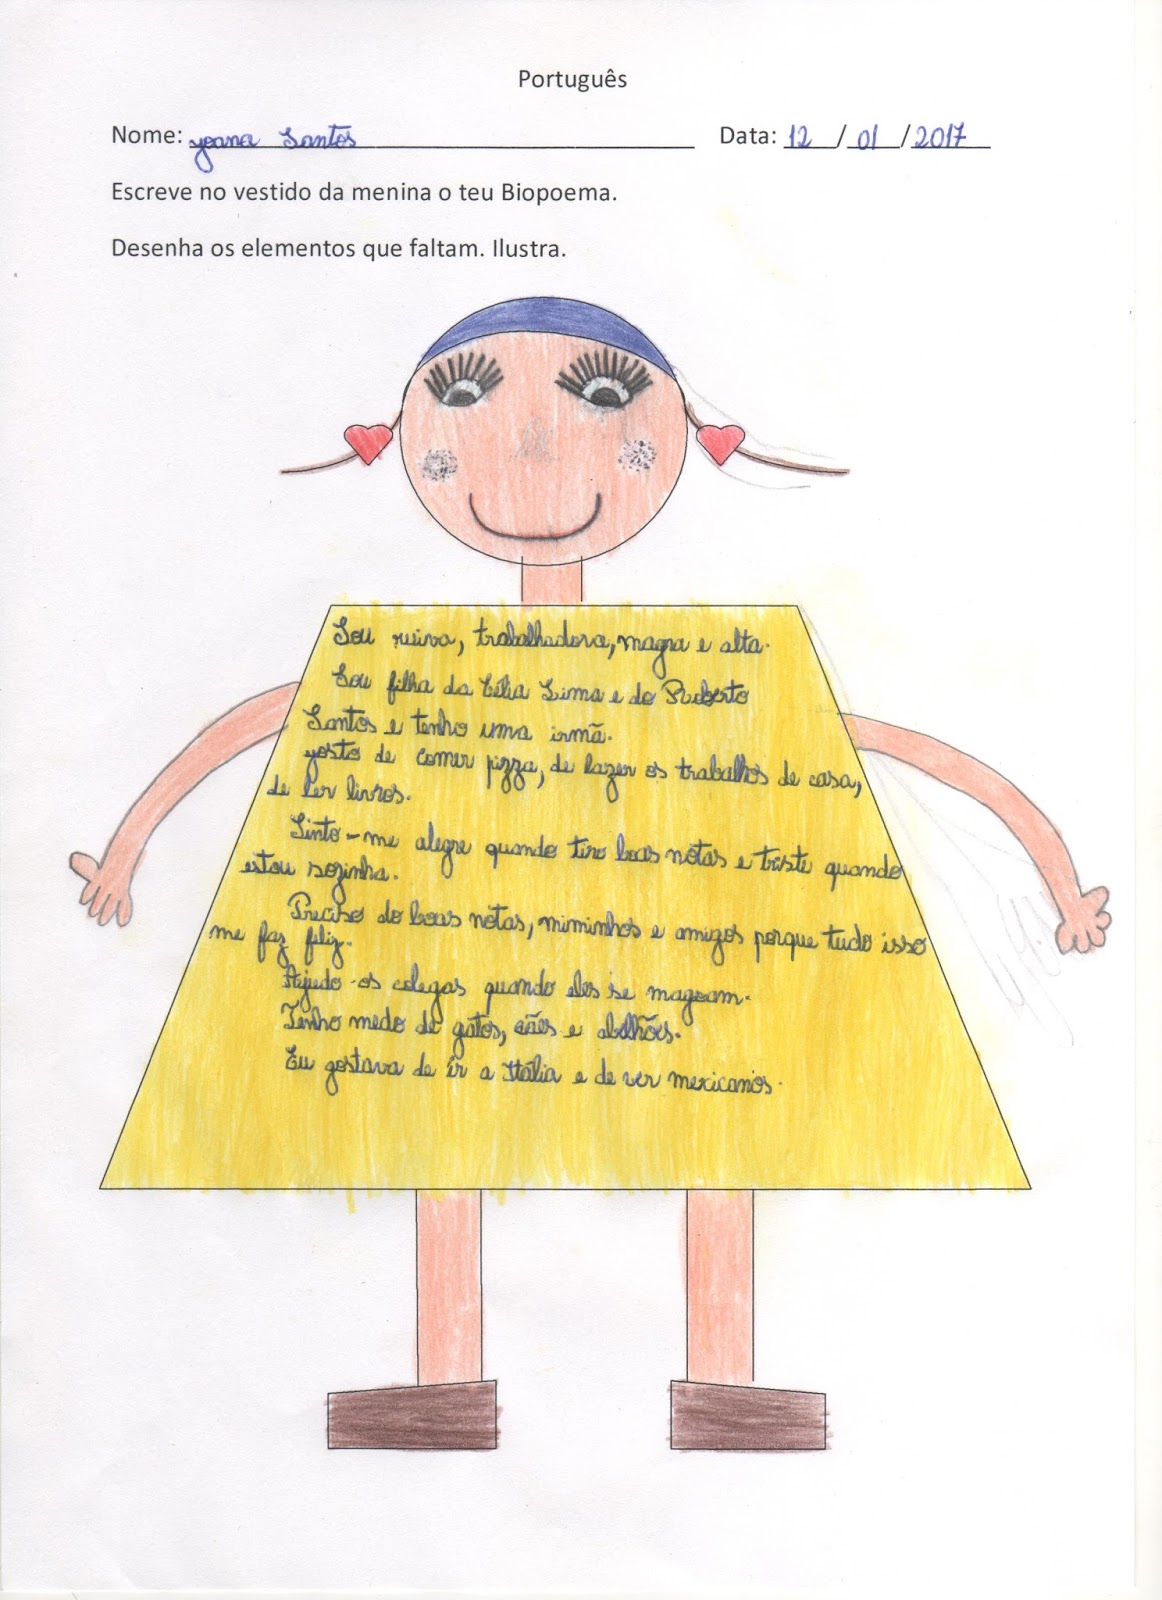 Português
Nome: Joana Santos Data: 12/01/2017
Escreve no vestido da menina o teu Biopoema.
Desenha os elementos que faltam. Ilustra.
Sou ruiva, trabalhadora, magra e alta.
Sou filha da Célia Lima e do Roberto
Santos e tenho uma irmã.
gosto de comer pizza, de fazer os trabalhos de casa,
de ler livros.
Sinto-me alegre quando tiro boas notas e triste quando
estou sozinha.
Preciso do boas notas, miminhos e amigos porque tudo isso
me faz feliz.
Ajudo os colegas quando eles se magoam.
Tenho medo de gatos, cães e
Eu gostava de ir a Itália e de ver mexicanos.